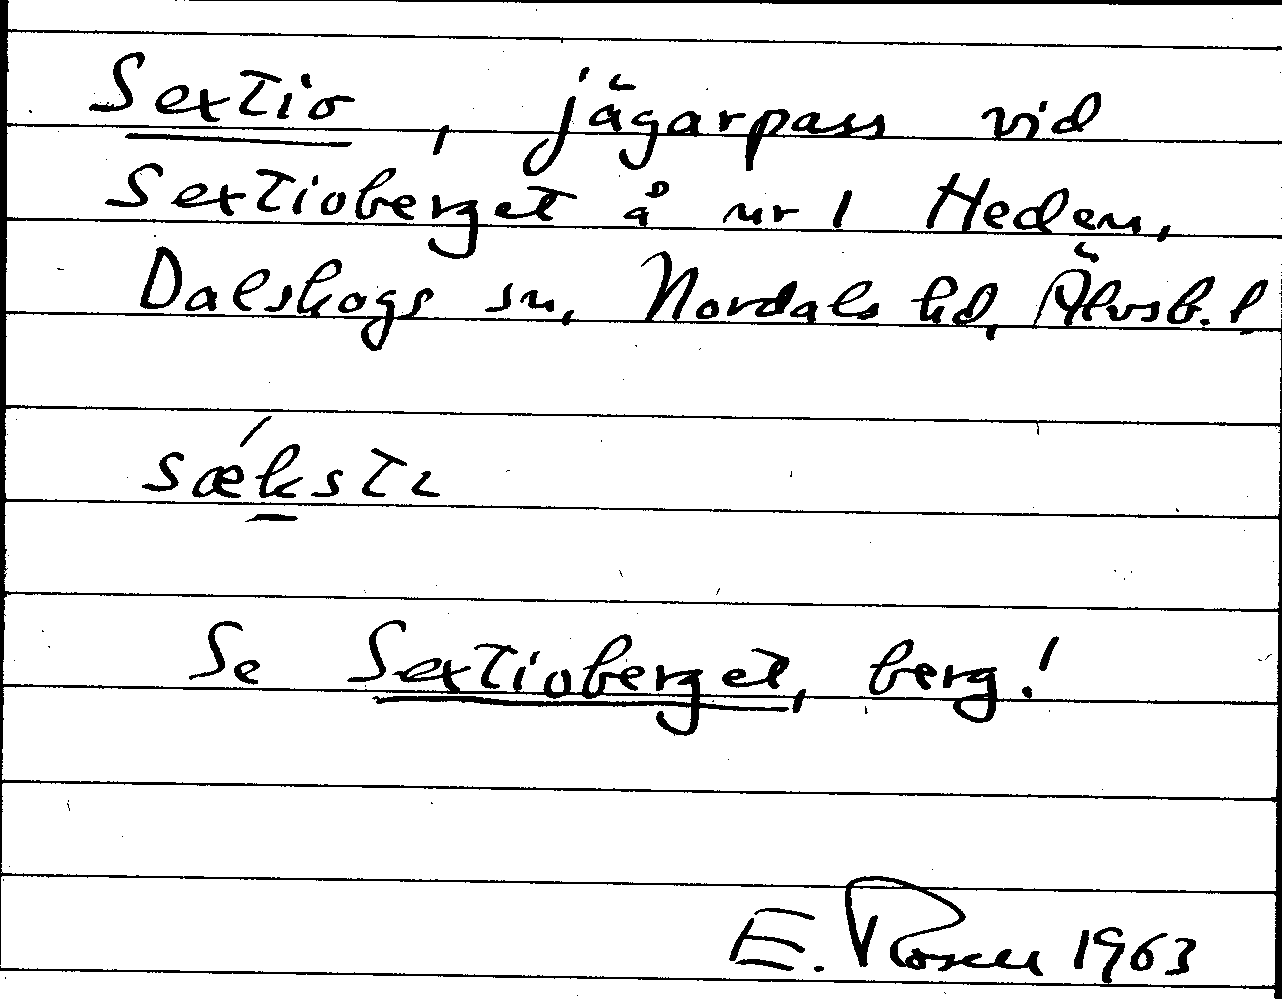 Sextio, jägarpass vid
Sextioberget å nr 1 Heden,
Dalskogs sn, Nordals hd, Älvsb. l.
sǽk̲stɩ
Se Sextioberget, berg!
E. Rosén 1963